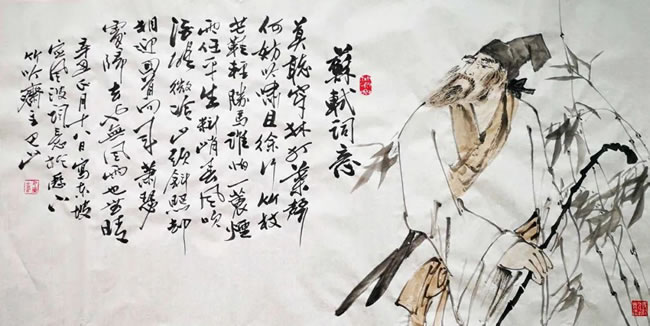 蘇軾詞意
莫聽穿林打葉聲
何妨吟嘯且徐行竹杖
芒鞋輕勝馬誰怕一蓑煙
雨任平生料峭春風吹
酒醒微冷山頭斜照却
相迎回首向來蕭瑟
處歸去也無風雨也無晴
辛丑正月十八日寫東坡
定風波詞意於歷下
竹吟齋主